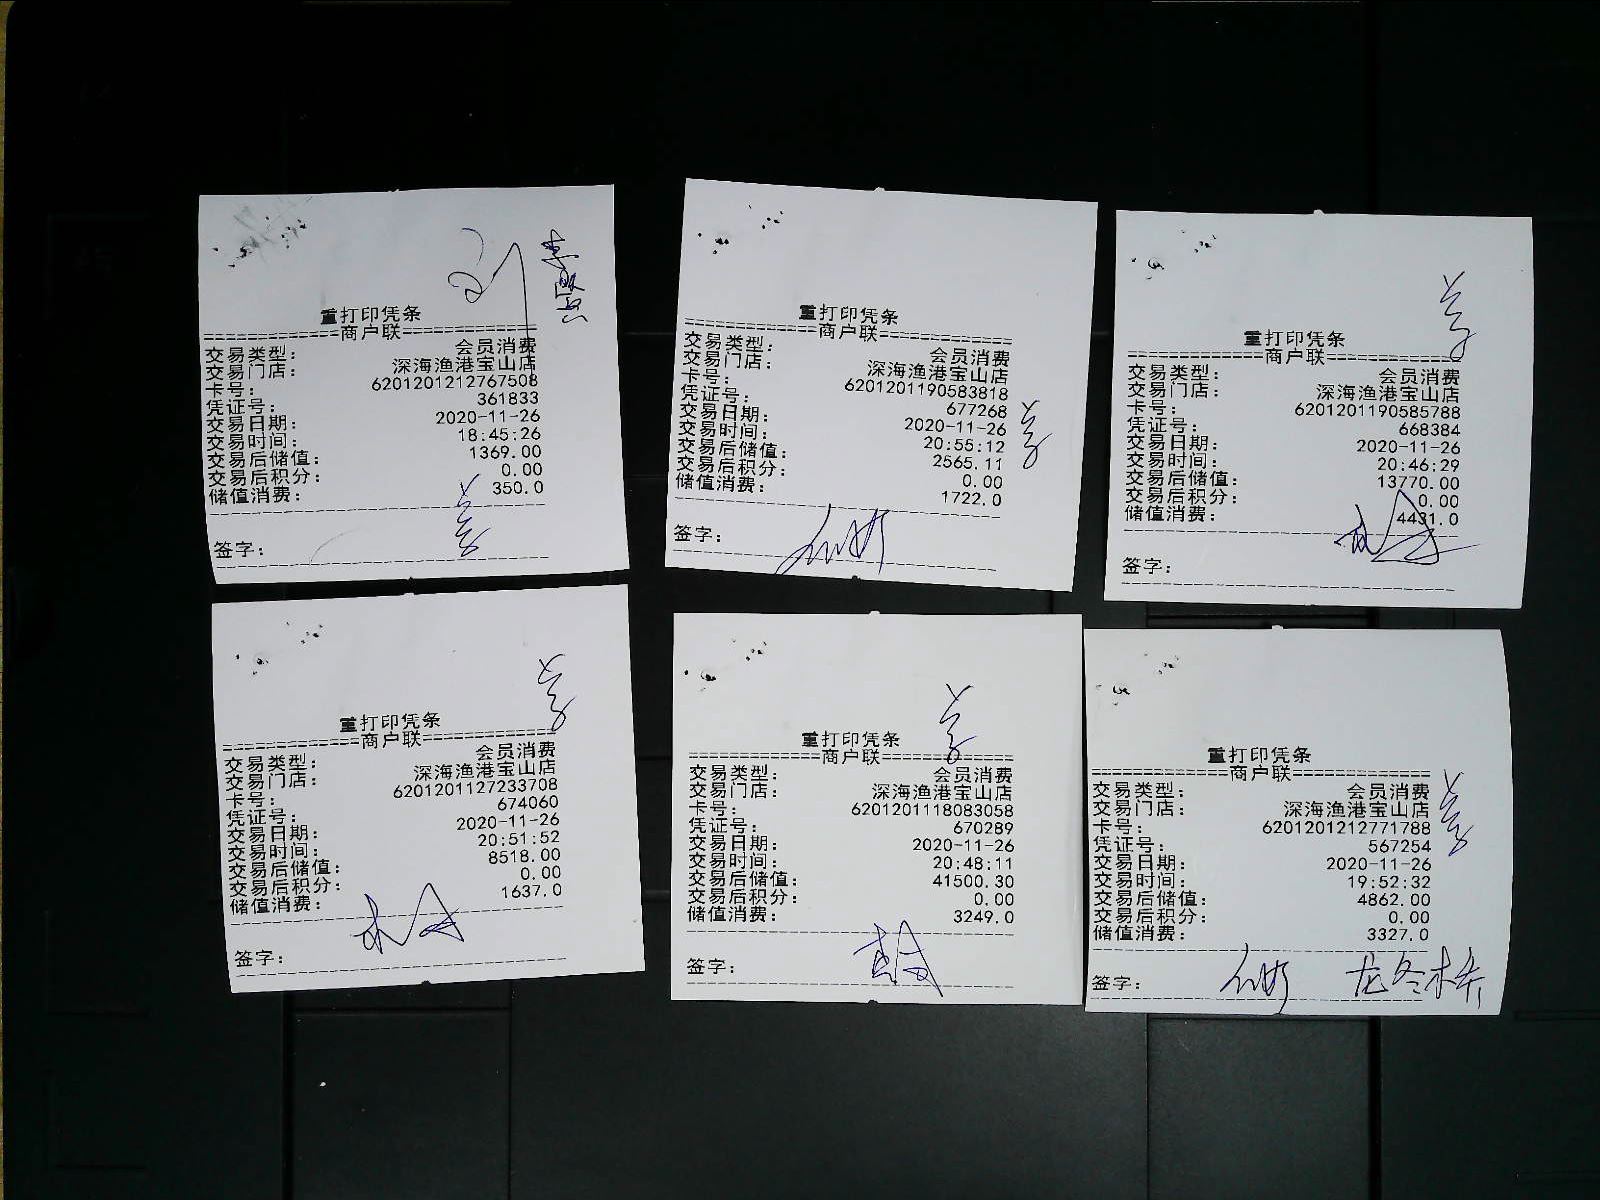 重打印凭条
================商户联================
交易类型： 会员消费
交易门店： 深海渔港宝山店
卡号： 6201201212767508
凭证号： 361833
交易日期： 2020-11-26
交易时间： 18:45:26
交易后储值： 1369.00
交易后积分： 0.00
储值消费： 350.0
签字：
重打印凭条
================商户联================
交易类型： 会员消费
交易门店： 深海渔港宝山店
卡号： 6201201190583818
凭证号： 677268
交易日期： 2020-11-26
交易时间： 20:55:12
交易后储值： 2565.11
交易后积分： 0.00
储值消费： 1722.0
签字：
重打印凭条
================商户联================
交易类型： 会员消费
交易门店： 深海渔港宝山店
卡号： 6201201190585788
凭证号： 668384
交易日期： 2020-11-26
交易时间： 20:46:29
交易后储值： 13770.00
交易后积分： 0.00
储值消费： 4431.0
签字：
重打印凭条
================商户联================
交易类型： 会员消费
交易门店： 深海渔港宝山店
卡号： 6201201127233708
凭证号： 674060
交易日期： 2020-11-26
交易时间： 20:51:52
交易后储值： 8518.00
交易后积分： 0.00
储值消费： 1637.0
签字：
重打印凭条
================商户联================
交易类型： 会员消费
交易门店： 深海渔港宝山店
卡号： 6201201118083058
凭证号： 670289
交易日期： 2020-11-26
交易时间： 20:48:11
交易后储值： 41500.30
交易后积分： 0.00
储值消费： 3249.0
签字：
重打印凭条
================商户联================
交易类型： 会员消费
交易门店： 深海渔港宝山店
卡号： 6201201212771788
凭证号： 567254
交易日期： 2020-11-26
交易时间： 19:52:32
交易后储值： 4862.00
交易后积分： 0.00
储值消费： 3327.0
签字：